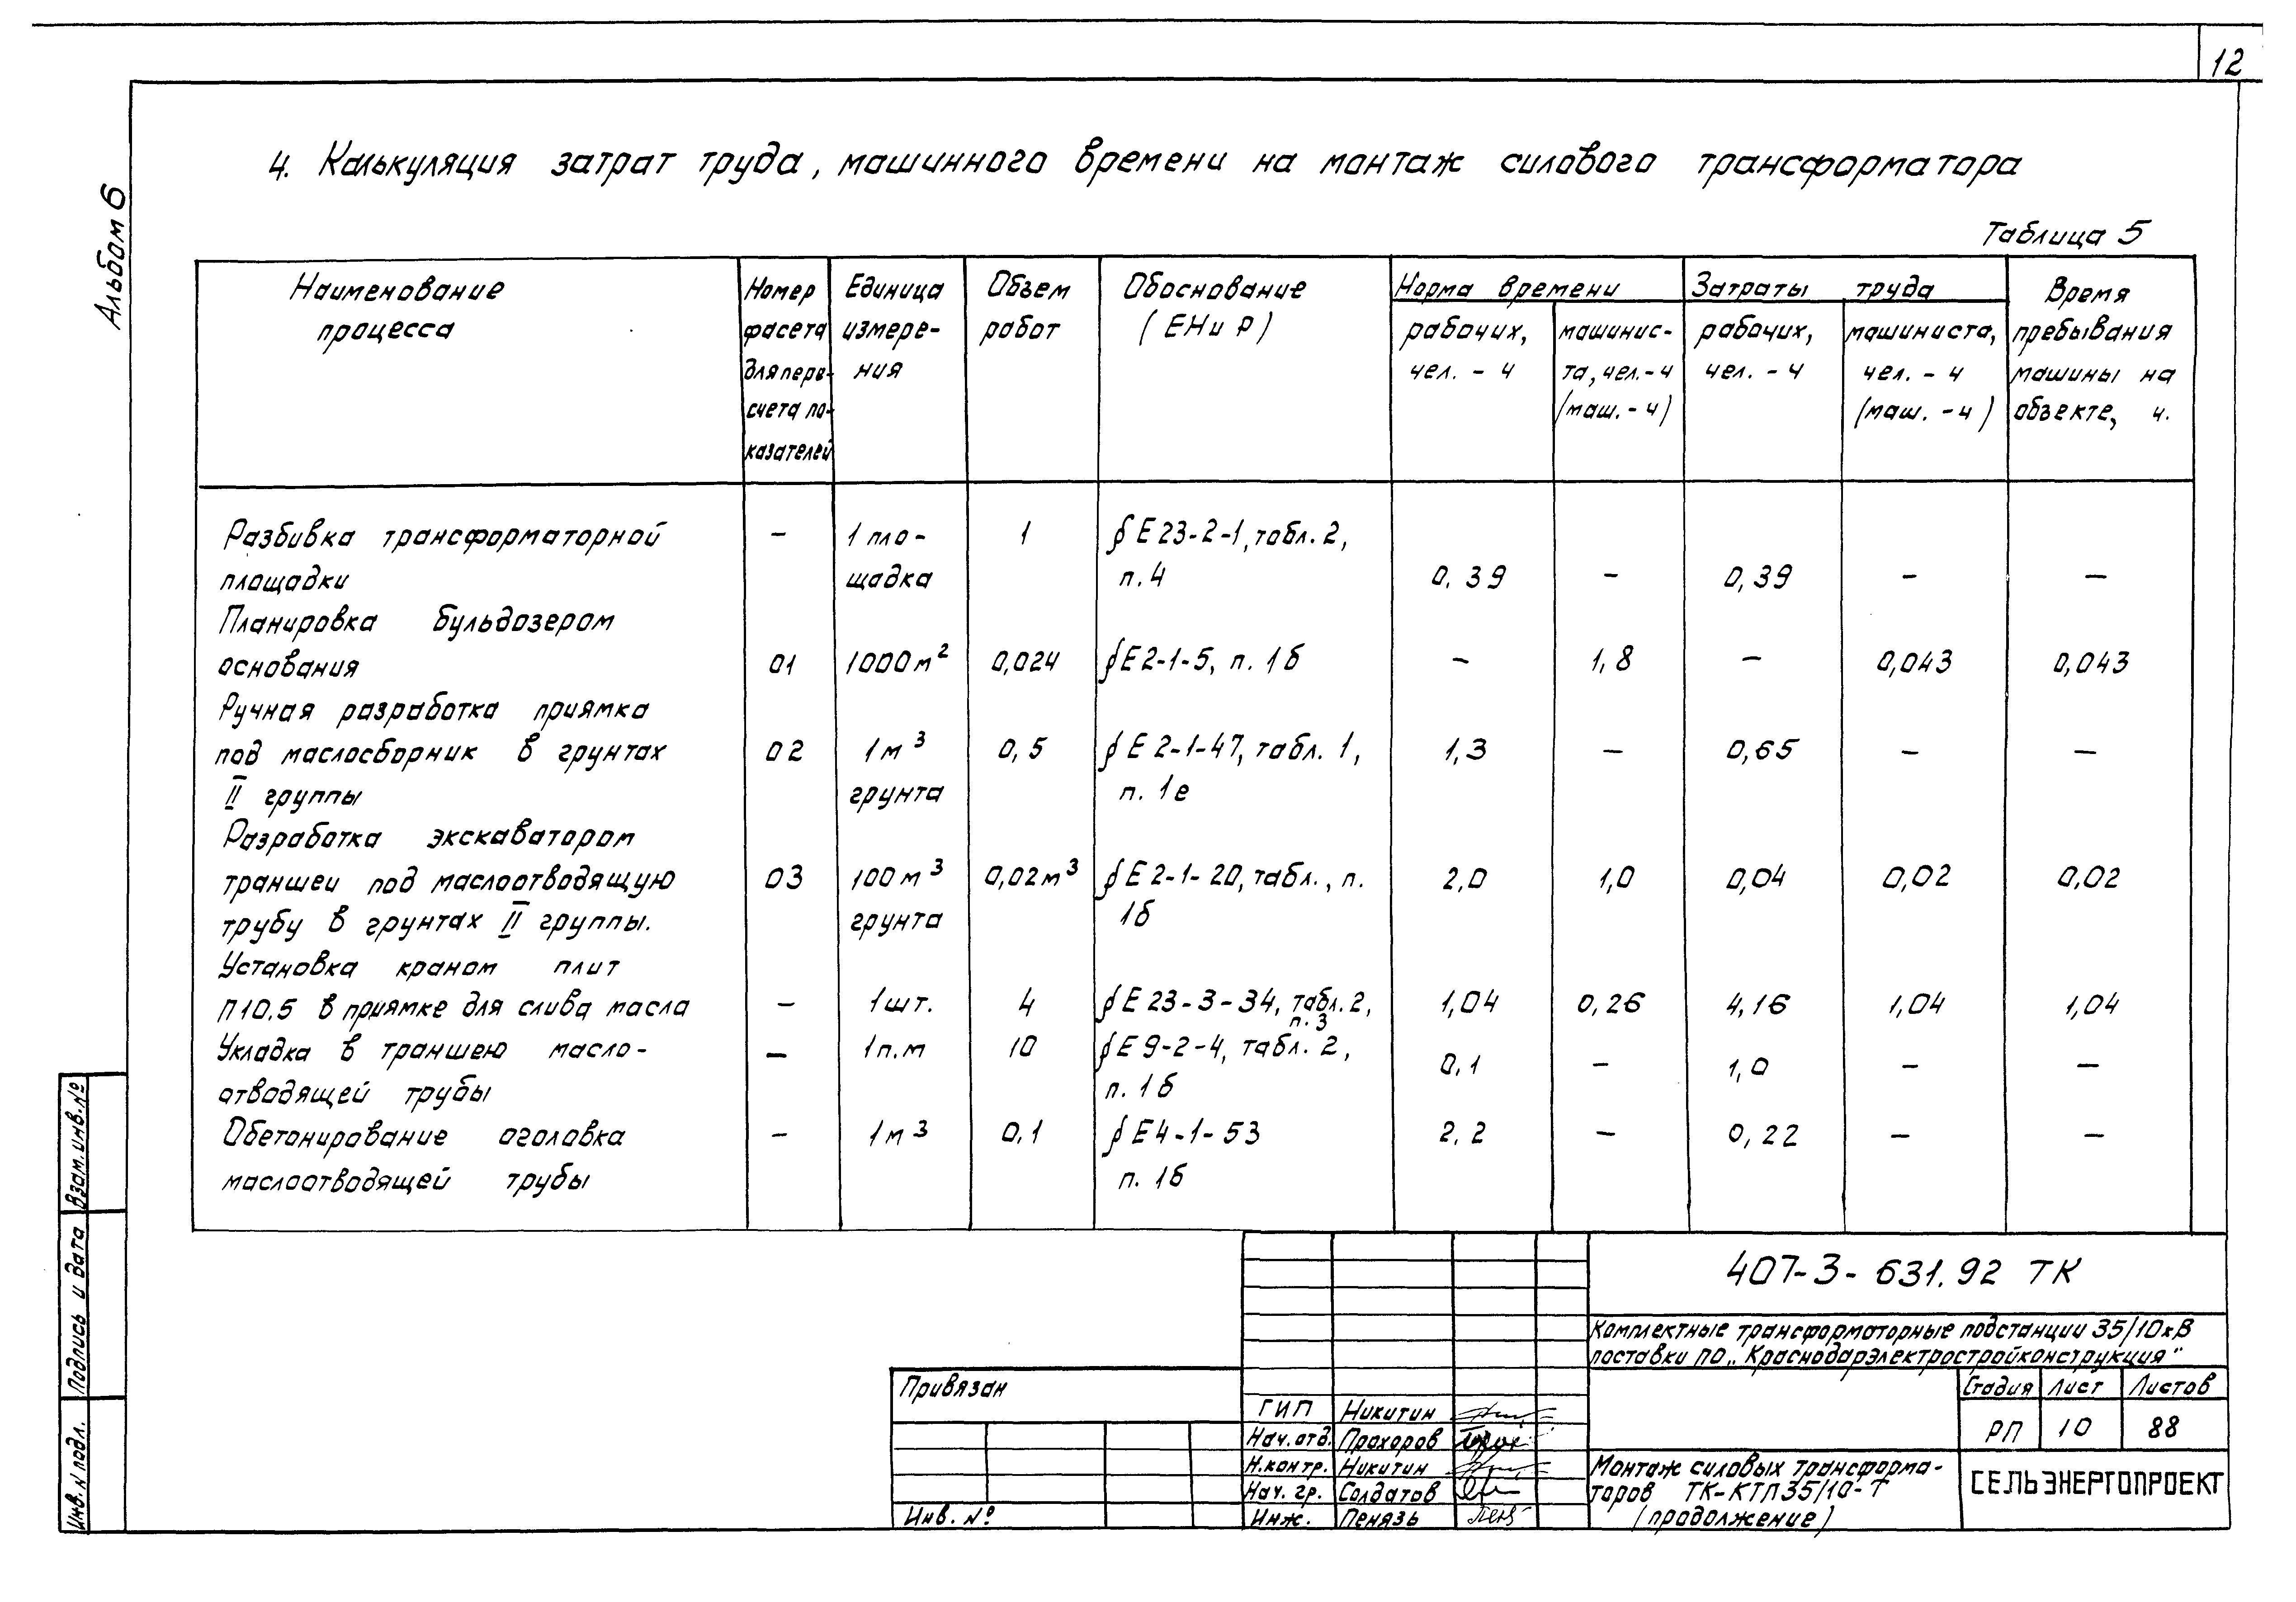 12
Альбом 6
4. Калькуляция затрат труда, машинного времени на монтаж силового трансформатора
Таблица 5
Наименование процесса
Номер фасета для пере- счета по- казателей
Единица измере- ния
Объем работ
Обоснование (ЕНиР)
Норма времени
рабочих, чел. - ч
машинис- та, чел.-ч (маш.-ч)
Затраты труда
рабочих, чел. - ч
машиниста, чел. - ч (маш. - ч)
Время пребывания машины на объекте, ч.
Разбивка трансформаторной - 1 пло- 1 § Е 23-2-1, табл. 2,
площадки щадка п. 4 0,39 - 0,39 - -
Планировка бульдозером
основания 01 1000м² 0,024 § Е 2-1-5, п. 1б - 1,8 - 0,043 0,043
Ручная разработка приямка
под маслосборник в грунтах 02 1м³ 0,5 § Е 2-1-47, табл. 1, 1,3 - 0,65 - -
II группы грунта п. 1е
Разработка экскаватором
траншеи под маслоотводящую 03 100м³ 0,02м³ § Е 2-1-20, табл., п. 2,0 1,0 0,04 0,02 0,02
трубу в грунтах II группы. грунта 1б
Установка краном плит
П10.5 в приямке для слива масла - 1шт. 4 § Е 23-3-34, табл. 2, 1,04 0,26 4,16 1,04 1,04
п. 3
Укладка в траншею масло- - 1п.м 10 § Е 9-2-4, табл. 2, 0,1 - 1,0 - -
отводящей трубы п. 1б
Обетонирование оголовка - 1м³ 0,1 § Е4-1-53 2,2 - 0,22 - -
маслоотводящей трубы п. 1б
Взам. инв. №
Подпись и дата
Инв. N подл.
407-3-631.92 ТК
Комплектные трансформаторные подстанции 35/10кВ
поставки ПО „Краснодарэлектростройконструкция"
Привязан
Инв. №
ГИП Никитин
Нач. отд. Прохоров
Н.контр. Никитин
Нач. гр. Солдатов
Инж. Пенязь
Стадия Лист Листов
РП 10 88
Монтаж силовых трансформа-
торов ТК-КТП35/10-Т
(продолжение)
СЕЛЬЭНЕРГОПРОЕКТ